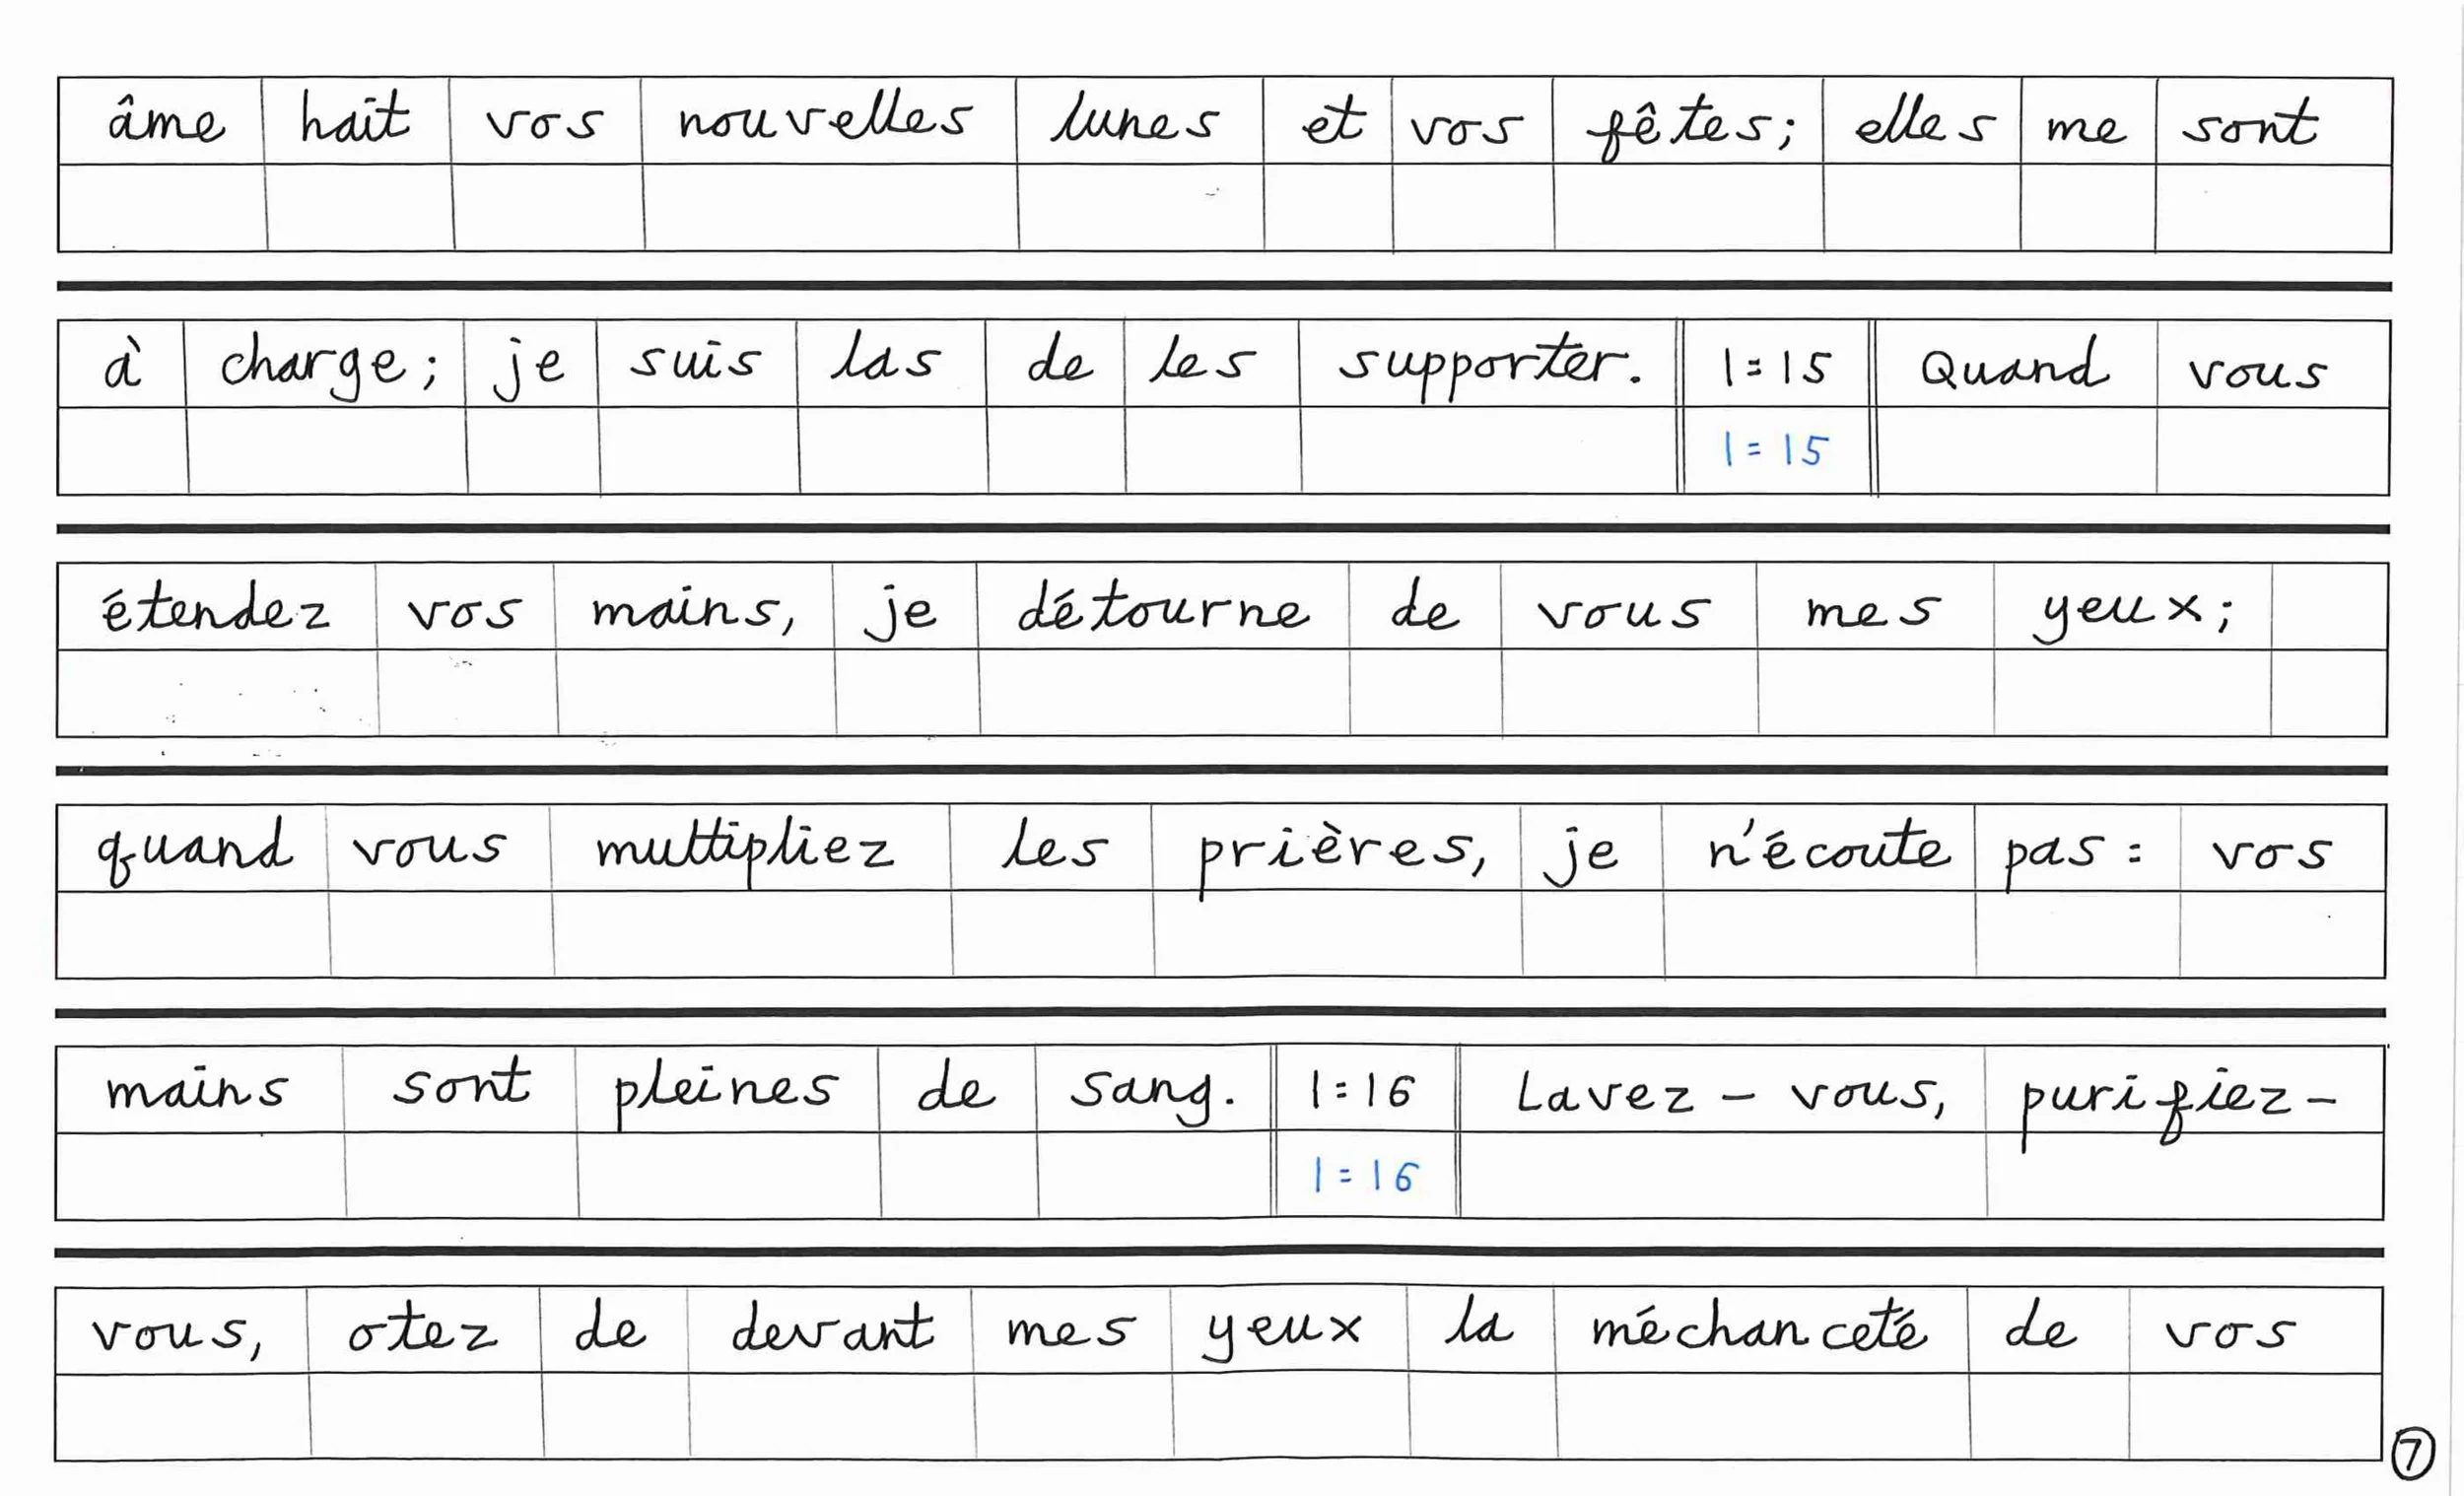 âme hait vos nouvelles lunes et vos fêtes; elles me sont
à charge; je suis las de les supporter. 1:15 Quand vous
1=15
étendez vos mains, je détourne de vous mes yeux;
quand vous multipliez les prières, je n'écoute pas: vos
mains sont pleines de sang. 1:16 Lavez-vous, purifiez-
1=16
vous, otez de devant mes yeux la méchanceté de vos
7